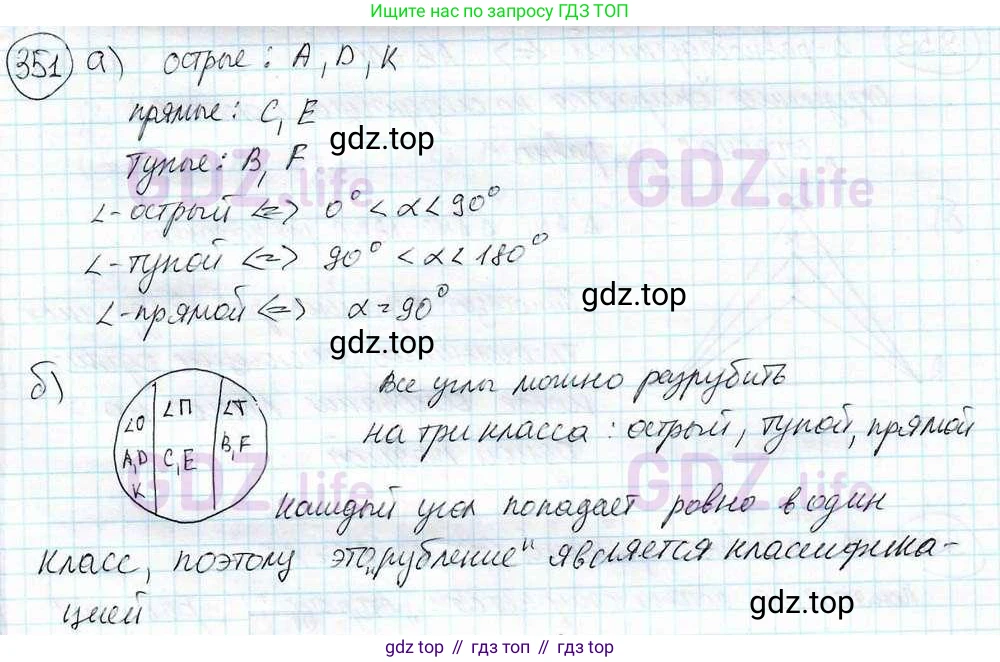 Ищите нас по запросу ГДЗ ТОП
351 а) острые: A, D, K
прямые: C, E
gdz.top
тупые: B, F
GDZ.life GDZ.life
∠-острый <=> 0° < α < 90°
∠-тупой <=> 90° < α < 180°
gdz.top
∠-прямой <=> α = 90°
gdz.top
б) ∠О ∠П ∠Т
A,D C,E B,F
K
Все углы можно разрубить
на три класса: острый, тупой, прямой
GDZ.life GDZ.life
Каждый угол попадает ровно в один
класс, поэтому это „рубление" является классифика-
цией
gdz.top
gdz.top // гдз.топ // gdz.top // гдз.топ